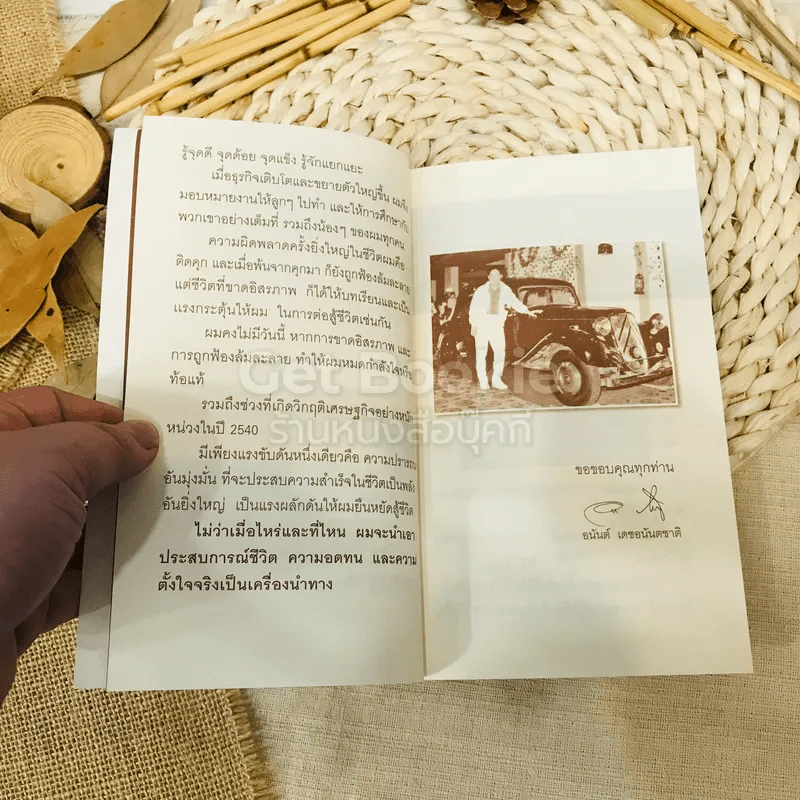 รู้จุดดี จุดด้อย จุดแข็ง รู้จักแยกแยะ
เมื่อธุรกิจเติบโตและขยายตัวใหญ่ขึ้น ผมจึง
มอบหมายงานให้ลูกๆ ไปทำ และให้การศึกษากับ
พวกเขาอย่างเต็มที่ รวมถึงน้องๆ ของผมทุกคน
ความผิดพลาดครั้งยิ่งใหญ่ในชีวิตผมคือ
ติดคุก และเมื่อพ้นจากคุกมา ก็ยังถูกฟ้องล้มละลาย
แต่ชีวิตที่ขาดอิสรภาพ ก็ได้ให้บทเรียนและเป็น
แรงกระตุ้นให้ผม ในการต่อสู้ชีวิตเช่นกัน
ผมคงไม่มีวันนี้ หากการขาดอิสรภาพ และ
การถูกฟ้องล้มละลาย ทำให้ผมหมดกำลังใจหรือ
ท้อแท้
รวมถึงช่วงที่เกิดวิกฤติเศรษฐกิจอย่างหนัก
หน่วงในปี 2540
มีเพียงแรงขับดันหนึ่งเดียวคือ ความปรารถนา
อันมุ่งมั่น ที่จะประสบความสำเร็จในชีวิตเป็นพลัง
อันยิ่งใหญ่ เป็นแรงผลักดันให้ผมยืนหยัดสู้ชีวิต
ไม่ว่าเมื่อไหร่และที่ไหน ผมจะนำเอา
ประสบการณ์ชีวิต ความอดทน และความ
ตั้งใจจริงเป็นเครื่องนำทาง
ขอขอบคุณทุกท่าน
อนันต์ เดชอนันตชาติ
Get Bookie
ร้านหนังสือบุ๊คกี้